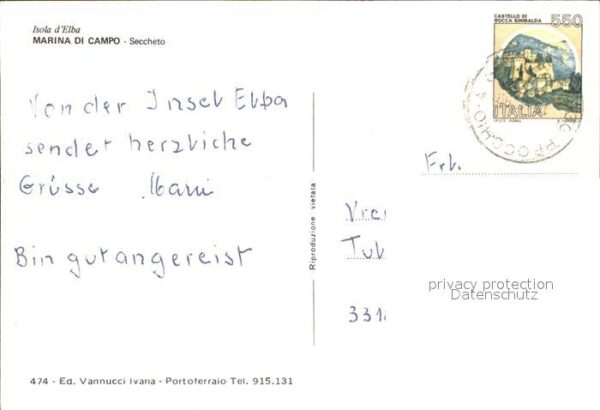 Isola d'Elba
MARINA DI CAMPO - Seccheto
CASTELLO DI
ROCCA SINIBALDA
550
ITALIA
PROCCHIO
Von der Insel Elba
sendet herzliche
Grüsse
Bin gut angereist
Riproduzione vietata
Frl.
Vre
Tul
331
privacy protection
Datenschutz
474 - Ed. Vannucci Ivana - Portoferraio Tel. 915.131